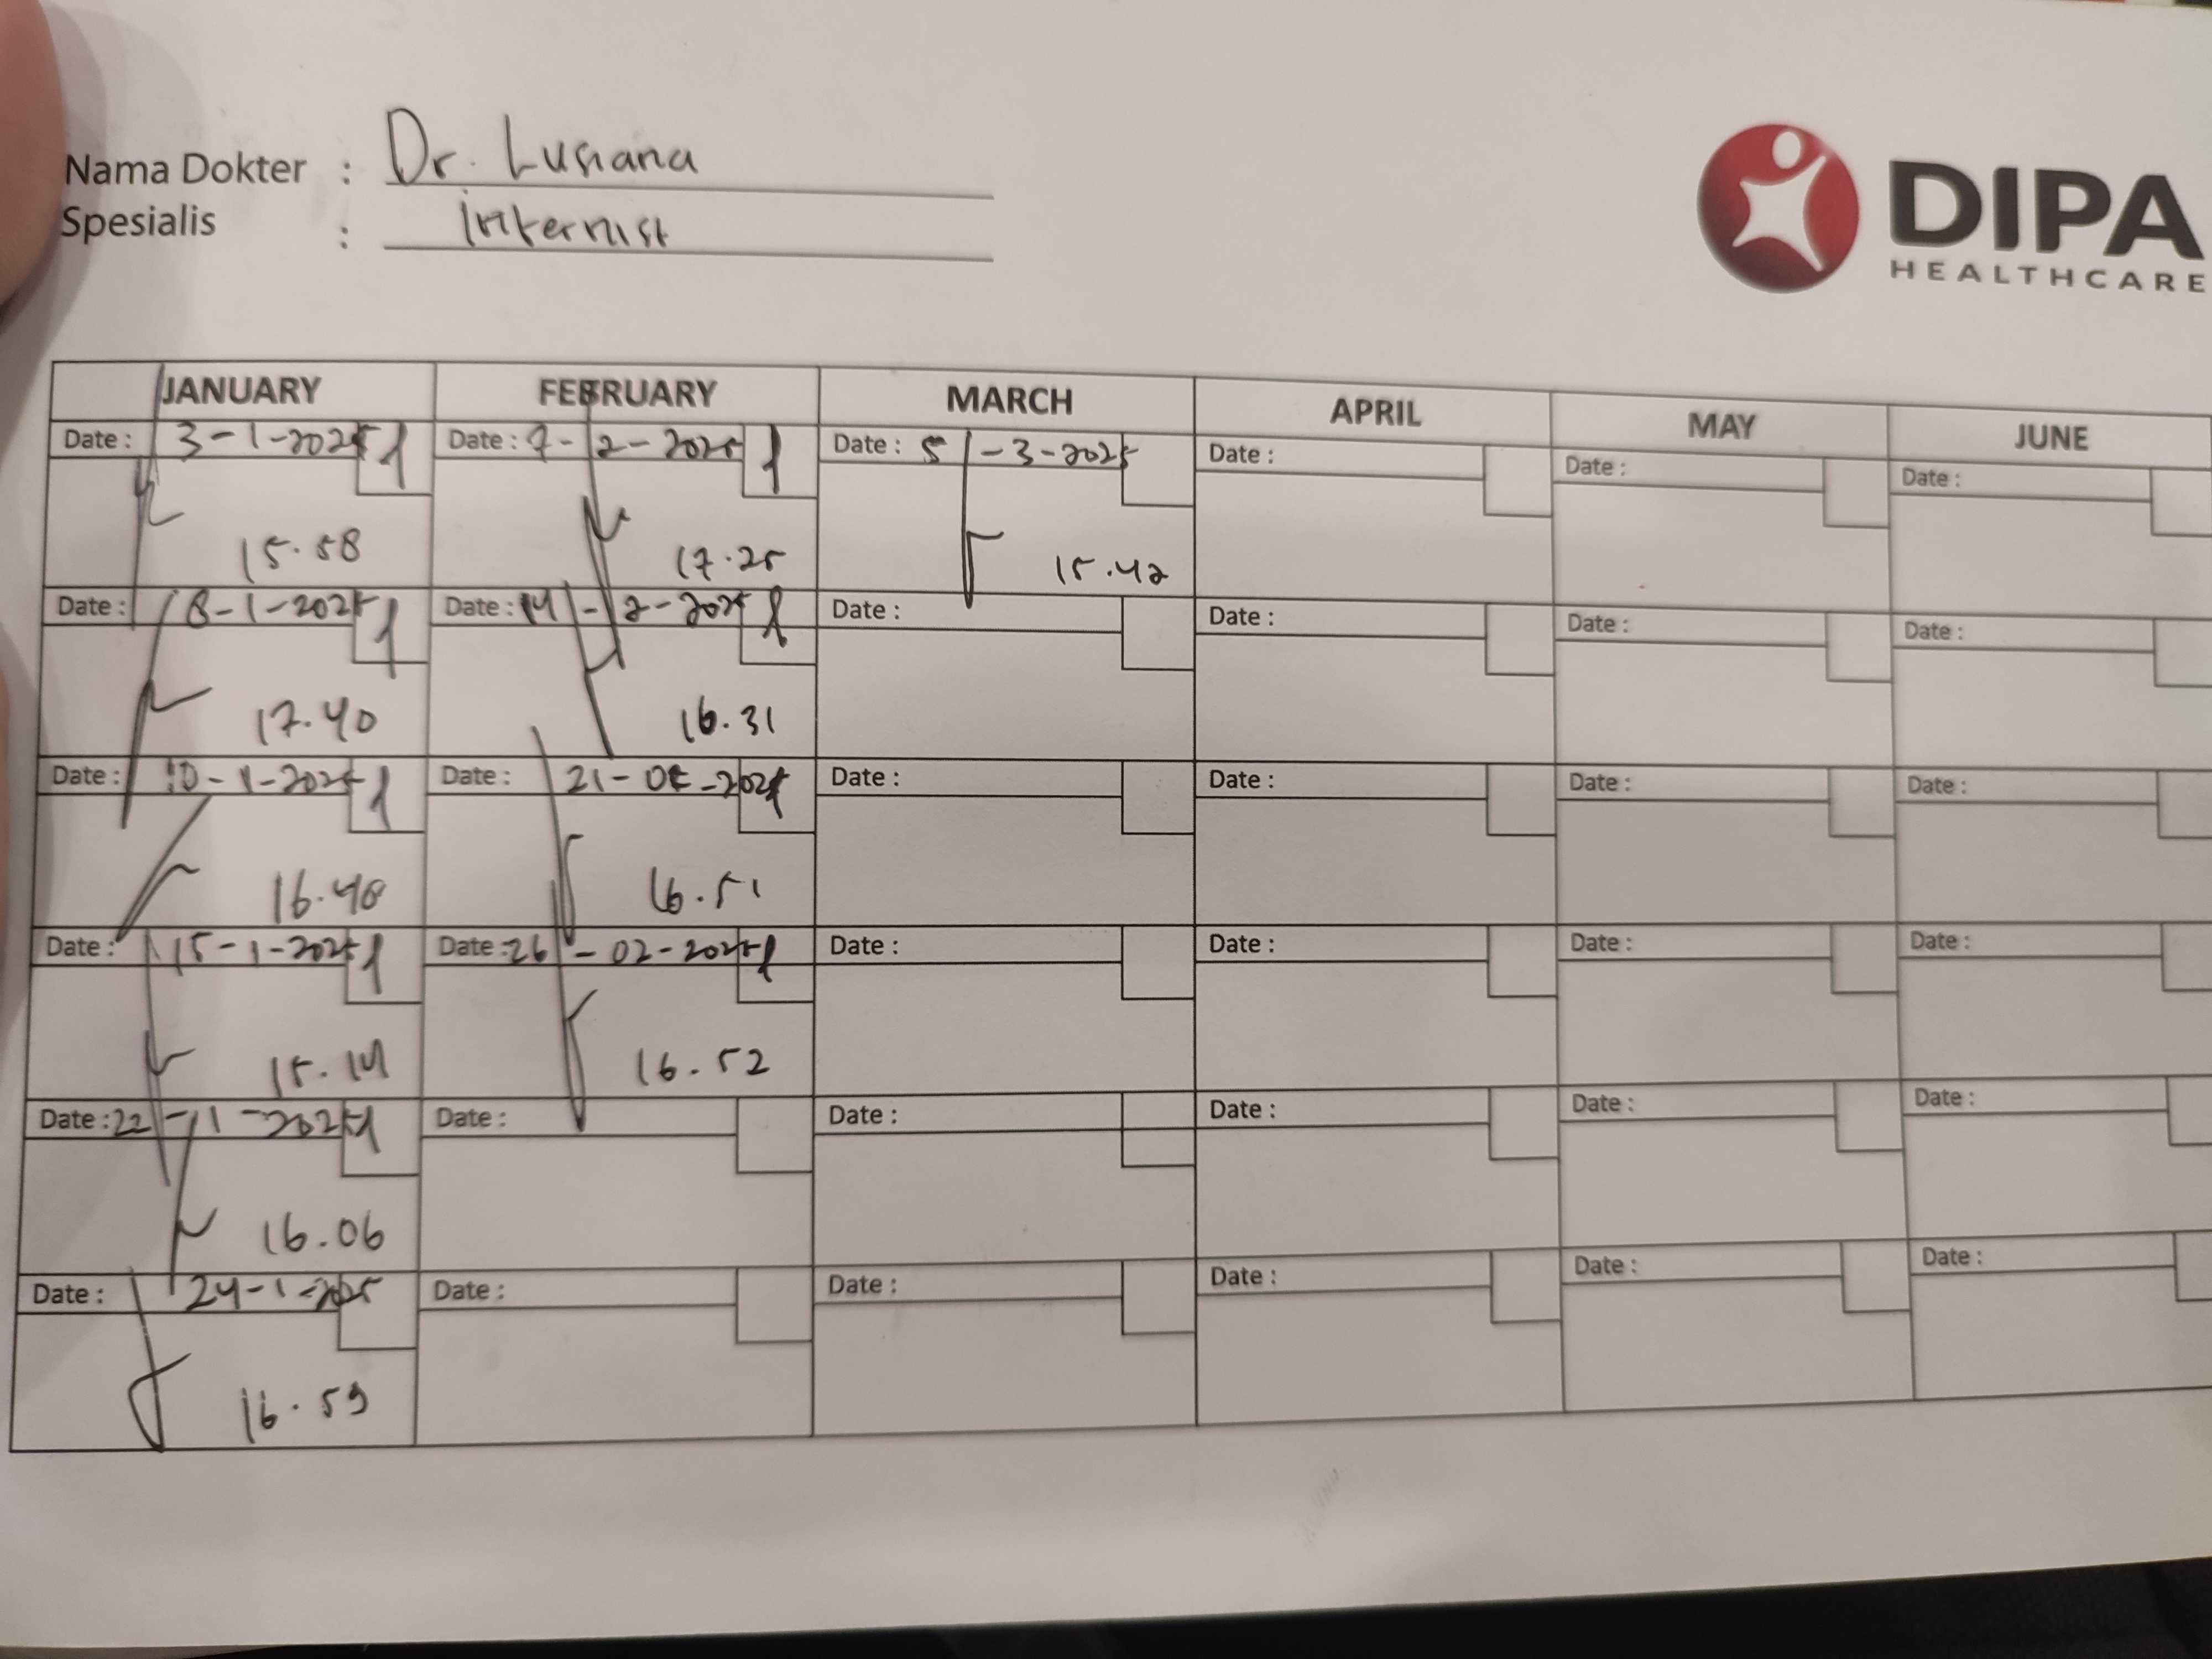 Nama Dokter : Dr. Lusiana
Spesialis : Internist
DIPA
HEALTHCARE
JANUARY FEBRUARY MARCH APRIL MAY JUNE
Date : 3-1-2025 Date : 7-2-2025 Date : 5-3-2025 Date : Date : Date :
15.58 17.25 15.42
Date : 8-1-2025 Date : 14-2-2025 Date : Date : Date : Date :
17.40 16.31
Date : 10-1-2025 Date : 21-02-2025 Date : Date : Date : Date :
16.48 16.51
Date : 15-1-2025 Date : 26-02-2025 Date : Date : Date : Date :
15.14 16.52
Date : 22-1-2025 Date : Date : Date : Date : Date :
16.06
Date : 24-1-2025 Date : Date : Date : Date : Date :
16.59